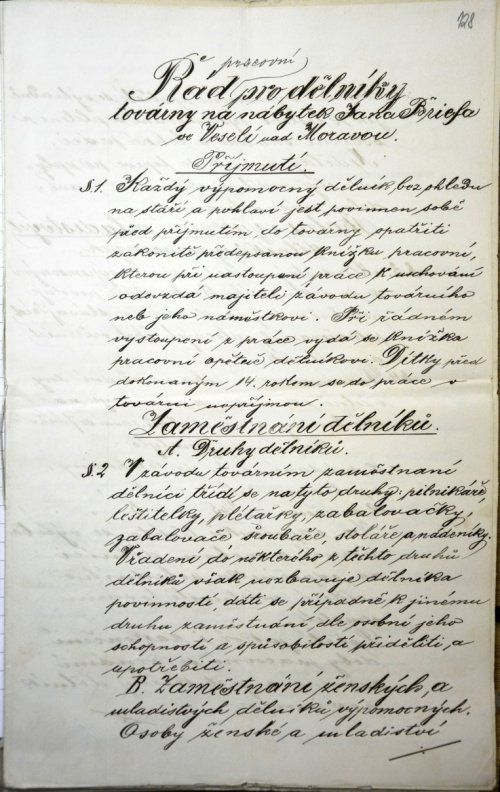 128
pracovní
Řád pro dělníky
továrny na nábytek Jana Břicha
ve Veselí nad Moravou.
Přijmutí.
§.1. Každý výpomocný dělník bez ohledu
na stáří a pohlaví jest povinnen sobě
před přijmutím do továrny opatřiti
zákonitě předepsanou knížku pracovní,
kterou při nastoupení práce k uschování
odevzdá majiteli závodu továrního
neb jeho náměstkovi. Při řádném
vystoupení z práce vydá se knížka
pracovní opětně dělníkovi. Dítky před
dokonaným 14. rokem se do práce v
továrni nepříjmou.
Zaměstnání dělníků.
A. Druhy dělníků.
§.2 V závodu továrním zaměstnaní
dělníci třídí se na tyto druhy: pilnikáře,
leštitelky, plétařky, zabalovačky,
zabalovače šroubaře, stoláře a nádeníky.
Vřadení do některého z těchto druhů
dělníků však nezbavuje dělníka
povinností, dáti se případně k jinému
druhu zaměstnání dle osobní jeho
schopnosti a spůsobilosti přiděliti, a
upotřebiti.
B. Zaměstnání ženských, a
mladistvých dělníků výpomocných.
Osoby ženské a mladiství